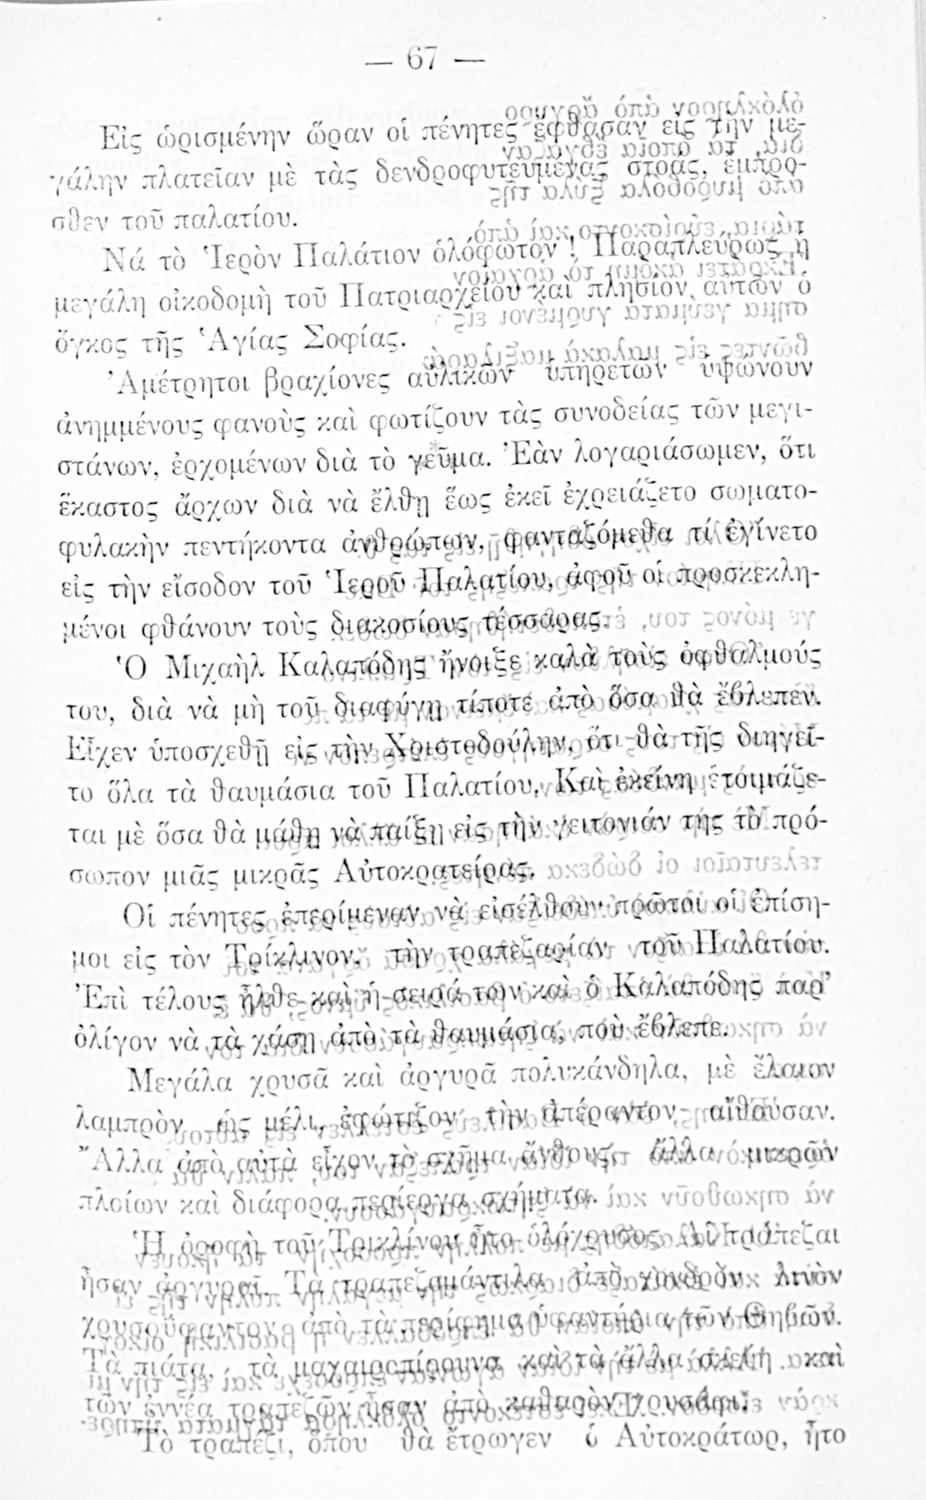 — 67 —
Εἰς ὡρισμένην ὥραν οἱ πένητες ἔφθασαν εἰς τὴν με-
γάλην πλατεῖαν μὲ τὰς δενδροφυτευμένας στοάς, ἔμπρο-
σθεν τοῦ παλατίου.
Νά τὸ Ἱερὸν Παλάτιον ὁλόφωτον! Παραπλεύρως ἡ
μεγάλη οἰκοδομὴ τοῦ Πατριαρχείου καὶ πλησίον αὐτῶν ὁ
ὄγκος τῆς Ἁγίας Σοφίας.
Ἀμέτρητοι βραχίονες αὐλικῶν ὑπηρετῶν ὑψώνουν
ἀνημμένους φανοὺς καὶ φωτίζουν τὰς συνοδείας τῶν μεγι-
στάνων, ἐρχομένων διὰ τὸ γεῦμα. Ἐὰν λογαριάσωμεν, ὅτι
ἕκαστος ἄρχων διὰ νὰ ἔλθῃ ἕως ἐκεῖ ἐχρειάζετο σωματο-
φυλακὴν πεντήκοντα ἀνθρώπων, φανταζόμεθα τί ἐγίνετο
εἰς τὴν εἴσοδον τοῦ Ἱεροῦ Παλατίου, ἀφοῦ οἱ προσκεκλη-
μένοι φθάνουν τοὺς διακοσίους τέσσαρας.
Ὁ Μιχαὴλ Καλαπόδης ἤνοιξε καλὰ τοὺς ὀφθαλμούς
του, διὰ νὰ μὴ τοῦ διαφύγῃ τίποτε ἀπὸ ὅσα θὰ ἔβλεπεν.
Εἶχεν ὑποσχεθῆ εἰς τὴν Χριστοδούλην, ὅτι θὰ τῆς διηγεῖ-
το ὅλα τὰ θαυμάσια τοῦ Παλατίου. Καὶ ἐκείνη ἑτοιμάζε-
ται μὲ ὅσα θὰ μάθῃ νὰ παίξῃ εἰς τὴν γειτονιάν της τὸ πρό-
σωπον μιᾶς μικρᾶς Αὐτοκρατείρας.
Οἱ πένητες ἐπερίμεναν νὰ εἰσέλθουν πρῶτοι οἱ ἐπίση-
μοι εἰς τὸν Τρίκλινον, τὴν τραπεζαρίαν τοῦ Παλατίου.
Ἐπὶ τέλους ἦλθε καὶ ἡ σειρά των καὶ ὁ Καλαπόδης παρ’
ὀλίγον νὰ τὰ χάσῃ ἀπὸ τὰ θαυμάσια, ποὺ ἔβλεπε.
Μεγάλα χρυσᾶ καὶ ἀργυρᾶ πολυκάνδηλα, μὲ ἔλαιον
λαμπρὸν ὡς μέλι, ἐφώτιζον τὴν ἀπέραντον αἴθουσαν.
Ἄλλα ἀπὸ αὐτὰ εἶχον τὸ σχῆμα ἄνθους, ἄλλα μικρῶν
πλοίων καὶ διάφορα περίεργα σχήματα.
Ἡ ὀροφὴ τοῦ Τρικλίνου ἦτο ὁλόχρυσος. Αἱ τράπεζαι
ἦσαν ἀργυραῖ. Τὰ τραπεζομάντιλα ἀπὸ χονδρὸν λινὸν
χρυσοΰφαντον ἀπὸ τὰ περίφημα ὑφαντήρια τῶν Θηβῶν.
Τὰ πιάτα, τὰ μαχαιροπίρουνα καὶ τὰ ἄλλα σκεύη καὶ
τῶν ἐννέα τραπεζῶν ἦσαν ἀπὸ καθαρὸν χρυσάφι.
Τὸ τραπέζι, ὅπου θὰ ἔτρωγεν ὁ Αὐτοκράτωρ, ἦτο